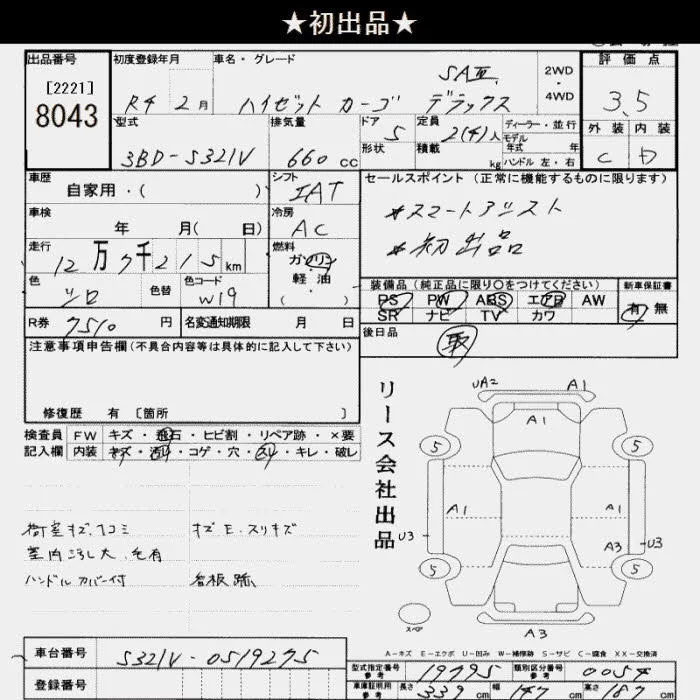 ★初出品★
出品番号 初度登録年月 車名・グレード 2WD・4WD 評価点
[2221]
8043
R4 2月 ハイゼット カーゴ デラックス SAⅢ 3.5
型式 排気量 ドア 形状 定員 積載 ディーラー・並行 モデル年式 年 外装 内装
3BD-S321V 660 cc 5 2(4)人 kg ハンドル 左・右 C D
車歴 シフト セールスポイント (正常に機能するものに限ります)
自家用・( ) IAT *スマートアシスト
車検 冷房
年 月( 日) AC *初出品
走行 燃料
12万7千215km ガソリン 軽油 ( )
色 色替 色コード 装備品 (純正品に限り○をつけてください) 新車保証書
シロ W19 PS PW ABS エアB AW 有 無
SR ナビ TV カワ
R券 7510円 名変通知期限 月 日 後日品 取
注意事項申告欄 (不具合内容等は具体的に記入して下さい)
修復歴 有 [箇所 ]
検査員 FW キズ・飛石・ヒビ割・リペア跡・×要
記入欄 内装 キズ・汚れ・コゲ・穴・スレ・キレ・破レ
リース会社出品
荷室キズ、凹コミ キズE.スリキズ
室内ヨゴレ大、毛有
ハンドルカバー付 看板跡
UA2 A1
A1
5 5
A1 A1
U3 A3 U3
5 5
スペア A3
A-キズ E-エクボ U-凹み W-補修跡 S-サビ C-腐食 XX-交換済
車台番号 S321V-0519275
型式指定番号 参考 19795 類別区分番号 参考 0054
登録番号
車庫証明用 参考 長さ 339 cm 幅 147 cm 高さ 187 cm